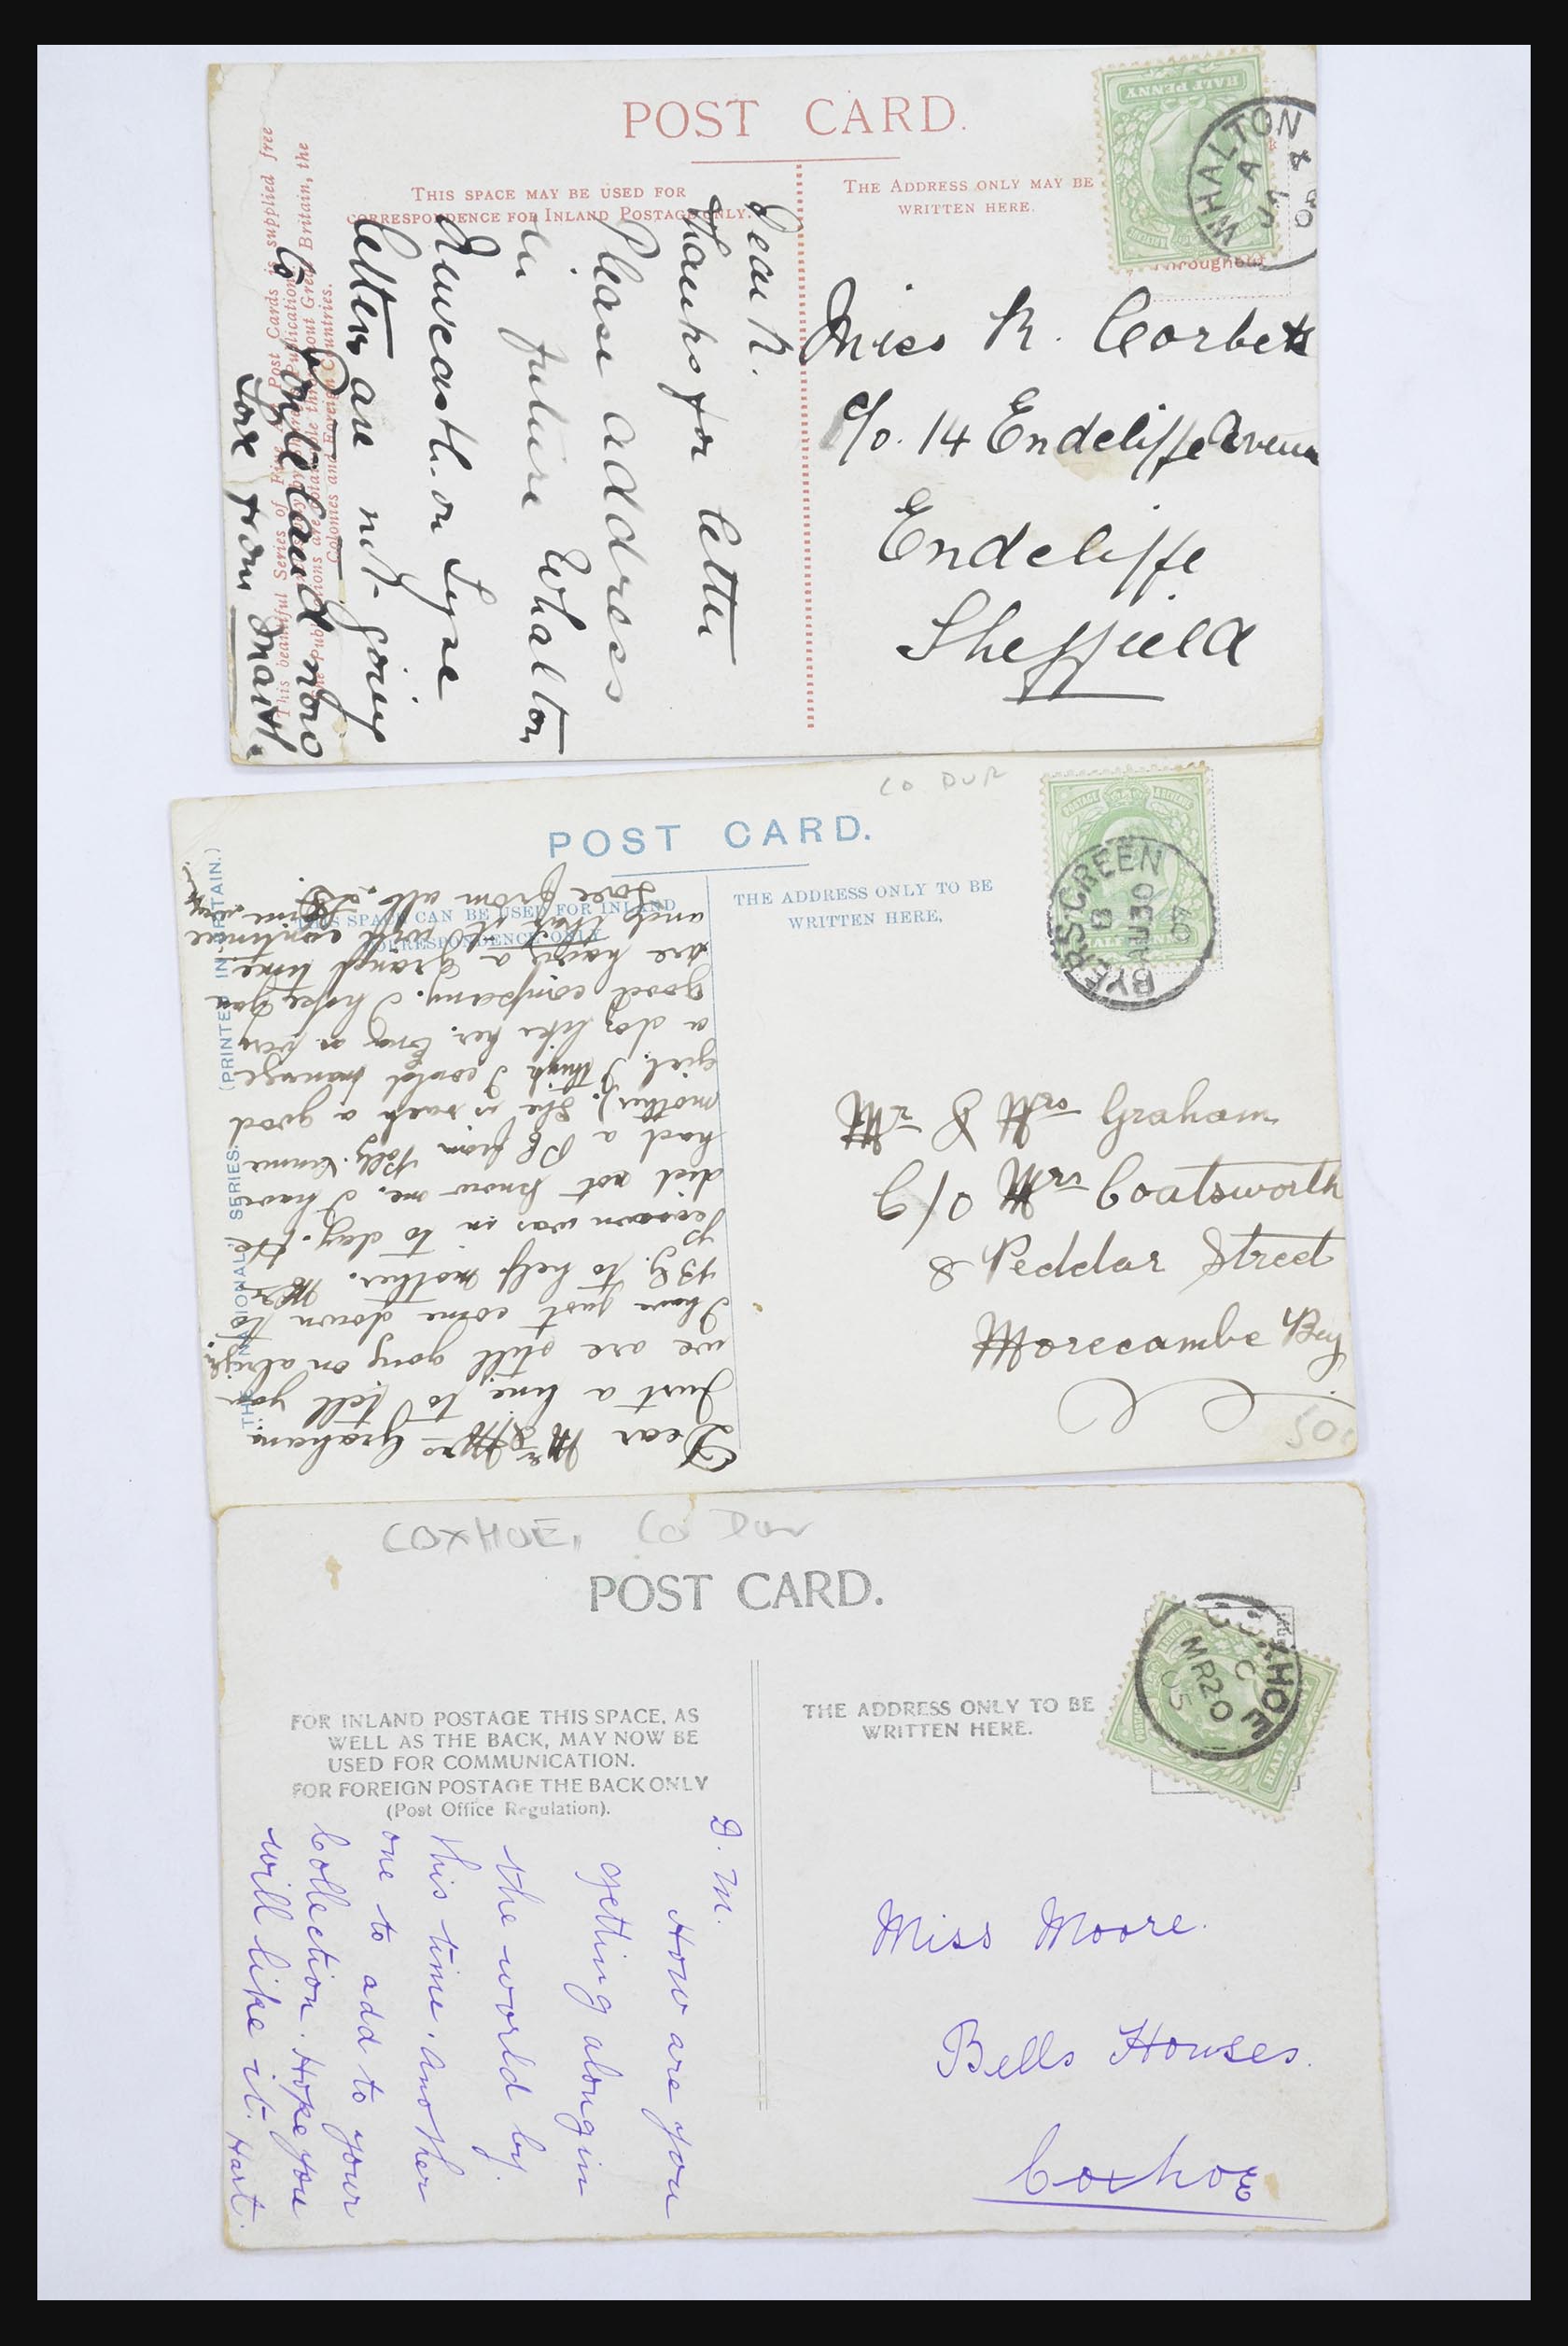 POST CARD.
THIS SPACE MAY BE USED FOR
CORRESPONDENCE FOR INLAND POSTAGE ONLY.
THE ADDRESS ONLY MAY BE
WRITTEN HERE.
HALF PENNY
WHALTON
A
4
Throughout
Miss R. Corbett
c/o. 14 Endcliffe Avenue
Endcliffe
Sheffield
Dear R.
Thanks for letter
Please address
in future Whalton
Newcastle. on Tyne
letters are not going
to Ponteland now
Love from
This beautiful Series of Fine Art Post Cards is supplied free
Colonies and Foreign Countries.
CO DUR
POST CARD.
THIS SPACE CAN BE USED FOR INLAND
CORRESPONDENCE ONLY
THE ADDRESS ONLY TO BE
WRITTEN HERE,
POSTAGE & REVENUE
HALF PENNY
BYERS GREEN
B
AU 30
07
Mr & Mrs Graham
C/o Mrs Coatsworth
8 Peddar Street
Morecambe Bay
50
"THE NATIONAL" SERIES. (PRINTED IN BRITAIN.)
Dear Mr & Mrs Graham
Just a line to tell you
we are still going on alright.
I have just come down to
B G. to help mother. Mr
was in to day. He
did not know me. I have
had a PC from Polly. (
mother). She is such a good
girl. I think I could manage
a day like her. is very
good company. I hope you
are having a grand time
and that it will continue
Love from all.
COXHOE, Co Dur
POST CARD.
FOR INLAND POSTAGE THIS SPACE, AS
WELL AS THE BACK, MAY NOW BE
USED FOR COMMUNICATION.
FOR FOREIGN POSTAGE THE BACK ONLY
(Post Office Regulation).
THE ADDRESS ONLY TO BE
WRITTEN HERE.
COXHOE
C
MR 20
05
HALF PENNY
Miss Moore.
Bells Houses.
Coxhoe
D. M.
How are you
getting along in
the world by
this time. Another
one to add to your
Collection. Hope you
will like it. Hart.